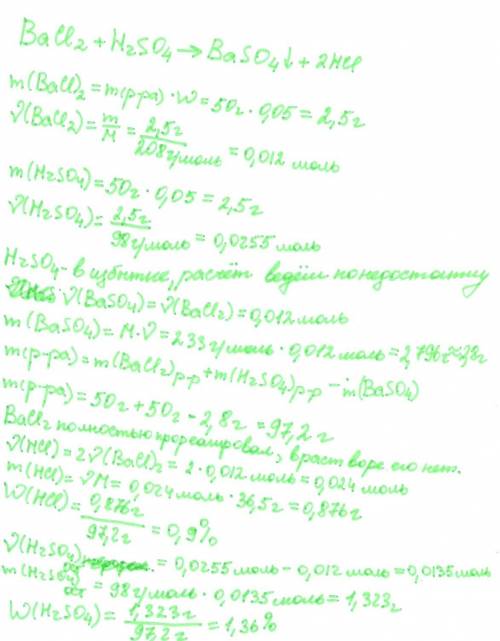 BaCl₂ + H₂SO₄ → BaSO₄↓ + 2HCl
m(BaCl)₂ = m(р-ра) · W = 50г · 0,05 = 2,5г
ν(BaCl₂) = m/M = 2,5г/208г/моль = 0,012 моль
m(H₂SO₄) = 50г · 0,05 = 2,5г
ν(H₂SO₄) = 2,5г/98г/моль = 0,0255 моль
H₂SO₄ - в избытке, расчёт ведём по недостатку
ν(BaSO₄) = ν(BaCl₂) = 0,012 моль
m(BaSO₄) = M · ν = 233г/моль · 0,012 моль = 2,796г ≈ 2,8г
m(р-ра) = m(BaCl₂)р-р + m(H₂SO₄)р-р - m(BaSO₄)
m(р-ра) = 50г + 50г - 2,8г = 97,2г
BaCl₂ полностью прореагировал, в растворе его нет.
ν(HCl) = 2ν(BaCl)₂ = 2 · 0,012 моль = 0,024 моль
m(HCl) = νM = 0,024 моль · 36,5г = 0,876г
W(HCl) = 0,876г/97,2г = 0,9%
ν(H₂SO₄)ост = 0,0255 моль - 0,012 моль = 0,0135 моль
m(H₂SO₄)ост = 98г/моль · 0,0135 моль = 1,323г
W(H₂SO₄) = 1,323г/97,2г = 1,36%